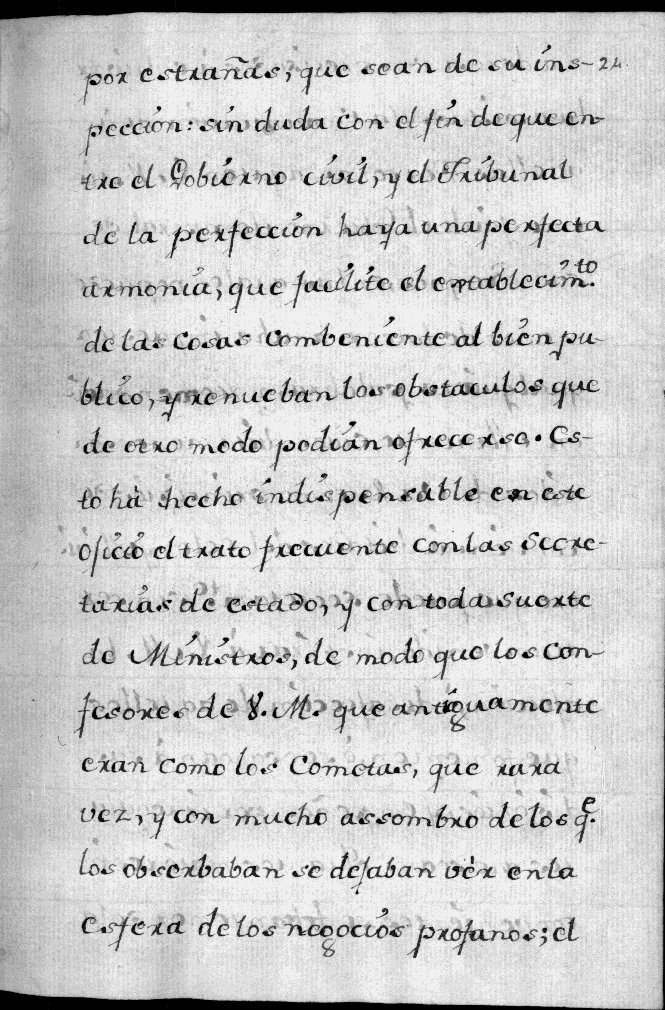 por estrañas, que sean de su ins- 24.
peccion: sin duda con el fin de que en-
tre el Gobierno civil, y el Tribunal
de la perfeccion haya una perfecta
armonia, que facilite el establecim.to
de las cosas combeniente al bien pu-
blico, y renueban los obstaculos que
de otro modo podian ofrecerse. Es-
to hà hecho indispensable en este
oficio el trato frecuente con las Secre-
tarias de estado, y con toda suerte
de Ministros, de modo que los Con-
fesores de V. M. que antiguamente
eran como los Cometas, que rara
vez, y con mucho assombro de los q.e
los obserbaban se dejaban vèr en la
esfera de los negocios profanos; el